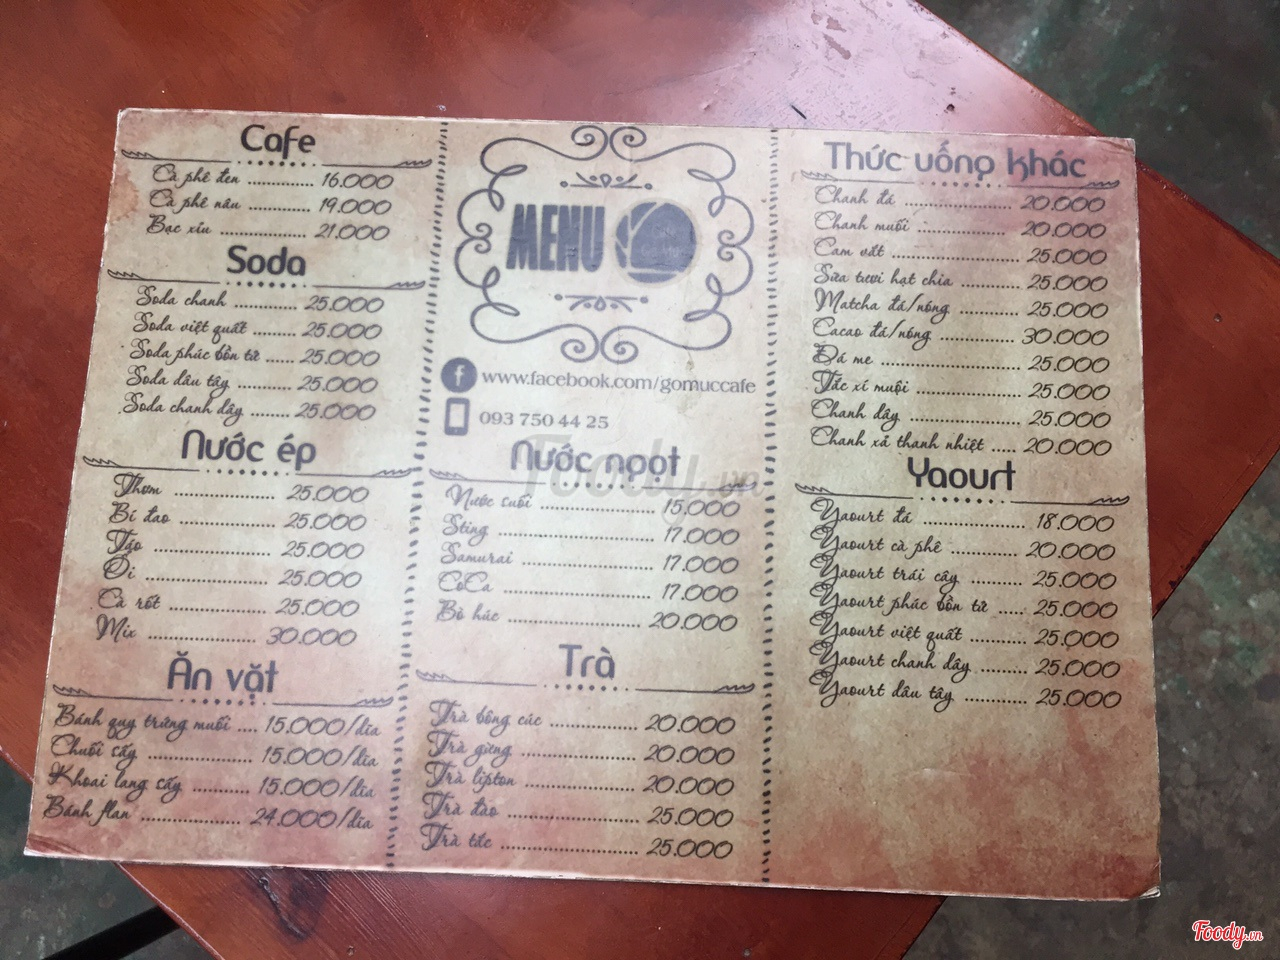 Cafe
Cà phê đen ............. 16.000
Cà phê nâu ............ 19.000
Bạc xỉu .............. 21.000
Soda
Soda chanh ............ 25.000
Soda việt quất ........ 25.000
Soda phúc bồn tử ...... 25.000
Soda dâu tây ........... 25.000
Soda chanh dây ........ 25.000
Nước ép
Thơm .................... 25.000
Bí đao ................... 25.000
Táo ...................... 25.000
Ổi ......................... 25.000
Cà rốt .................... 25.000
Mix .................... 30.000
Ăn vặt
Bánh quy trứng muối .... 15.000/dĩa
Chuối sấy ................... 15.000/dĩa
Khoai lang sấy ............ 15.000/dĩa
Bánh flan ..................... 24.000/dĩa
MENU
www.facebook.com/gomuccafe
093 750 44 25
Nước ngọt
Nước suối ........................ 15.000
Sting .............................. 17.000
Samurai ......................... 17.000
CoCa .............................. 17.000
Bò húc ........................... 20.000
Trà
Trà bông cúc .................. 20.000
Trà gừng ........................ 20.000
Trà lipton ....................... 20.000
Trà đào ........................... 25.000
Trà tắc ............................ 25.000
Thức uống khác
Chanh đá ...................... 20.000
Chanh muối .................. 20.000
Cam vắt ........................ 25.000
Sữa tươi hạt chia ............ 25.000
Matcha đá/nóng ............ 25.000
Cacao đá/nóng .............. 30.000
Đá me ........................... 25.000
Tắc xí muội ................... 25.000
Chanh dây ..................... 25.000
Chanh xả thanh nhiệt ..... 20.000
Yaourt
Yaourt đá ..................... 18.000
Yaourt cà phê ............... 20.000
Yaourt trái cây ............. 25.000
Yaourt phúc bồn tử ..... 25.000
Yaourt việt quất .......... 25.000
Yaourt chanh dây ........ 25.000
Yaourt dâu tây ............. 25.000
Foody.vn
Foody.vn